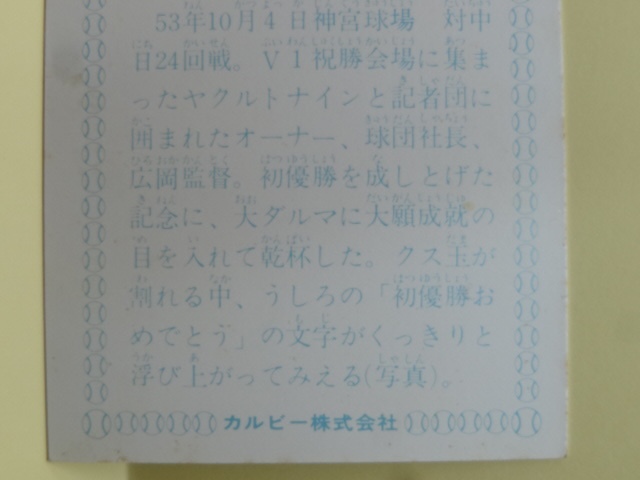 53年10月4日神宮球場　対中
日24回戦。V1祝勝会場に集ま
ったヤクルトナインと記者団に
囲まれたオーナー、球団社長、
広岡監督。初優勝を成しとげた
記念に、大ダルマに大願成就の
目を入れて乾杯した。クス玉が
割れる中、うしろの「初優勝お
めでとう」の文字がくっきりと
浮び上がってみえる(写真)。
カルビー株式会社